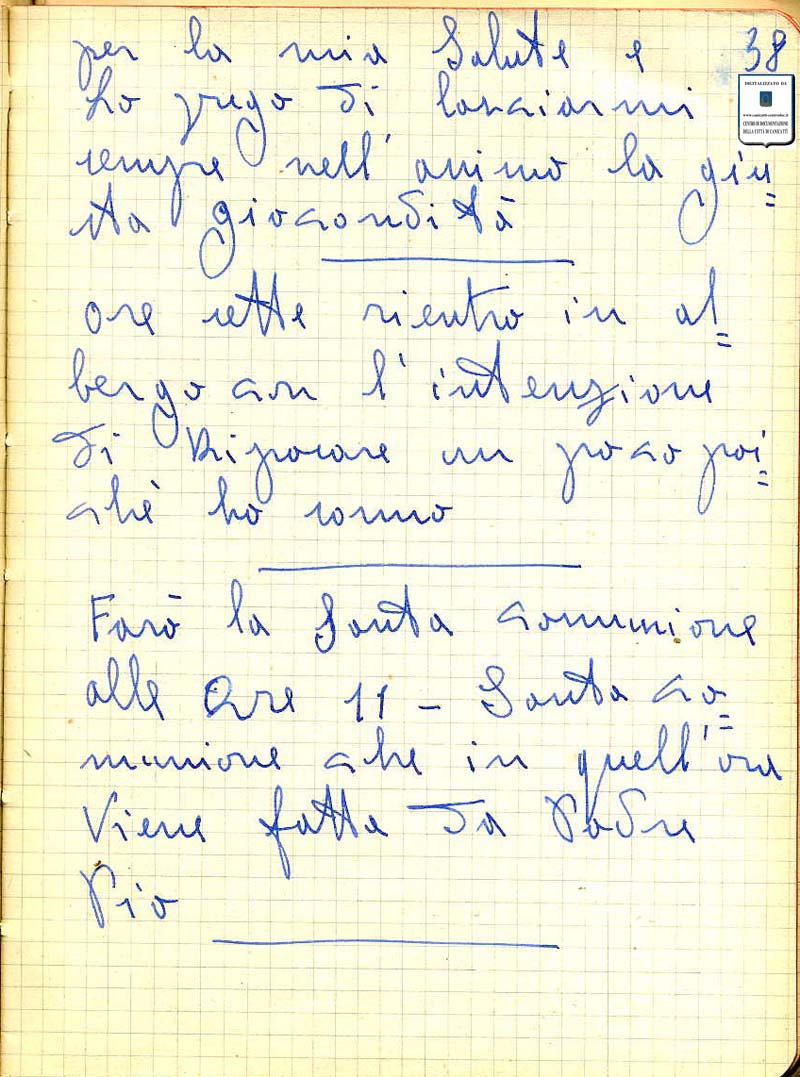 38
per la mia Salute e
Lo prego di lasciarmi
sempre nell'animo la giu=
sta giocondità
Ore sette rientro in al=
bergo con l'intenzione
di Riposare un poco poi=
chè ho sonno
Farò la Santa comunione
alle Ore 11 - Santa co=
munione che in quell'ora
Viene fatta da Padre
Pio
DIGITALIZZATO DA
CENTRO DI DOCUMENTAZIONE
DELLA CITTÀ DI CANICATTÌ